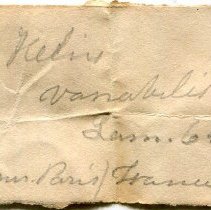 Helix
variabilis
Lam. 6
Paris) France